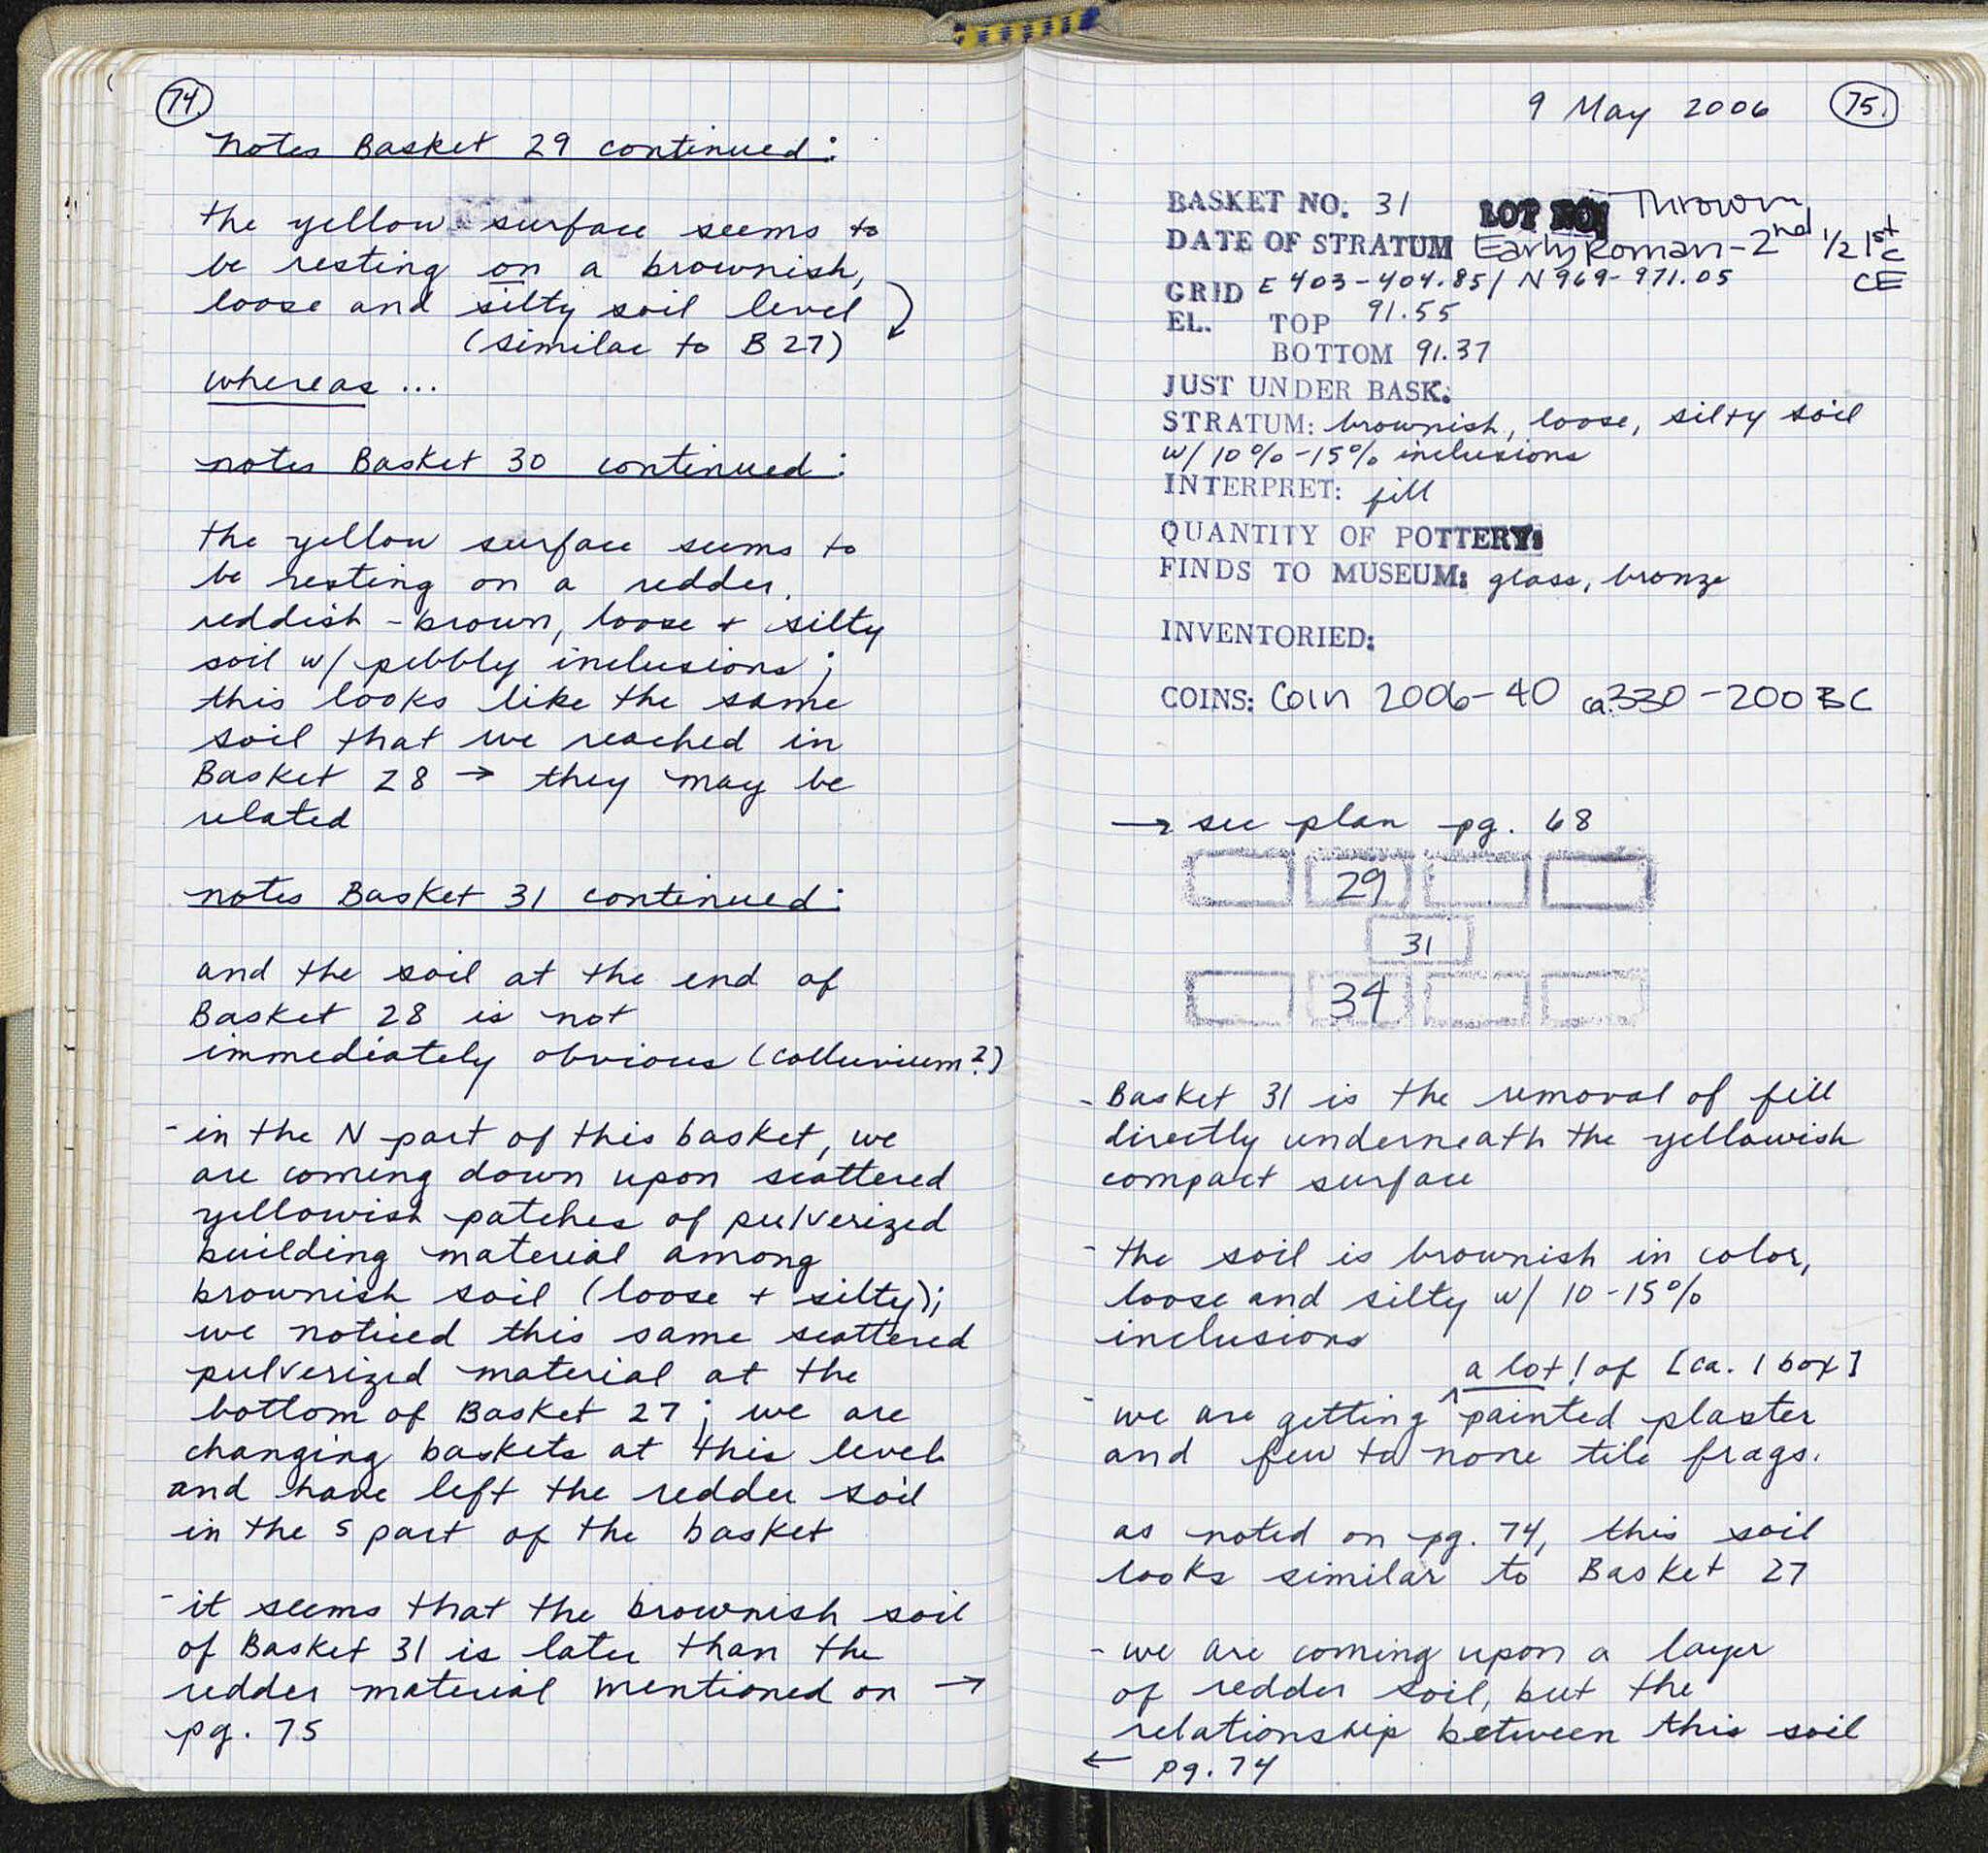 74.
notes Basket 29 continued:
the yellow surface seems to
be resting on a brownish,
loose and silty soil level
(similar to B 27)
whereas ...
notes Basket 30 continued:
the yellow surface seems to
be resting on a redder,
reddish-brown, loose + silty
soil w/ pebbly inclusions;
this looks like the same
soil that we reached in
Basket 28 → they may be
related
notes Basket 31 continued:
and the soil at the end of
Basket 28 is not
immediately obvious (colluvium?)
- in the N part of this basket, we
are coming down upon scattered
yellowish patches of pulverized
building material among
brownish soil (loose + silty);
we noticed this same scattered
pulverized material at the
bottom of Basket 27; we are
changing baskets at this level
and have left the redder soil
in the S part of the basket
- it seems that the brownish soil
of Basket 31 is later than the
redder material mentioned on →
pg. 75
9 May 2006 75.
BASKET NO. 31 LOT NO: Thrown
DATE OF STRATUM Early Roman - 2nd 1/2 1st c
CE
GRID E 403-404.85 / N 969-971.05
EL. TOP 91.55
BOTTOM 91.37
JUST UNDER BASK:
STRATUM: brownish, loose, silty soil
w/ 10%-15% inclusions
INTERPRET: fill
QUANTITY OF POTTERY:
FINDS TO MUSEUM: glass, bronze
INVENTORIED:
COINS: Coin 2006-40 ca. 330-200 BC
→ see plan pg. 68
29
31
34
- Basket 31 is the removal of fill
directly underneath the yellowish
compact surface
- the soil is brownish in color,
loose and silty w/ 10-15%
inclusions
a lot! of [ca. 1 box]
- we are getting ^ painted plaster
and few to none tile frags.
as noted on pg. 74, this soil
looks similar to Basket 27
- we are coming upon a layer
of redder soil, but the
relationship between this soil
← pg. 74